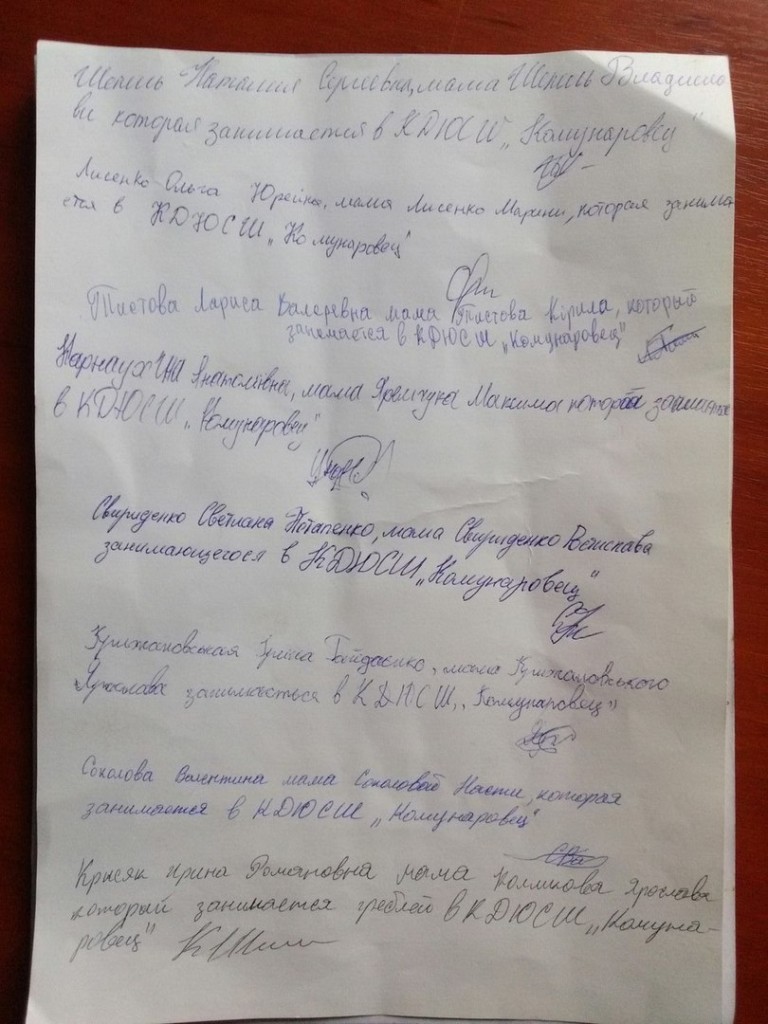 Шепель Наталия Сергеевна, мама Шепель Владисла
вы которая занимается в КДЮСШ „Комунаровец"
Лисенко Ольга Юреївна, мама Лисенко Марини, которая занима
ется в КДЮСШ „Комунаровец"
Тистова Лариса Валеревна мама Тистова Кірила, который
занемается в КДЮСШ „Комунаровец"
Анатоліївна, мама Максима который
в КДЮСШ „Комунаровец"
Свириденко Светлана Потапенко, мама Свириденко
занимающегося в КДЮСШ „Комунаровец"
Крижановская Гайдаенко, мама Крижановського
Ярослава занимається в КДЮСШ „Комунаровец"
Соколова Валентина мама Соколовой Насти, которая
занимается в КДЮСШ „Комунаровец"
Крисяк Ирина Романовна мама Ярослава
который занимается греблей в КДЮСШ „Комуна-
ровец"